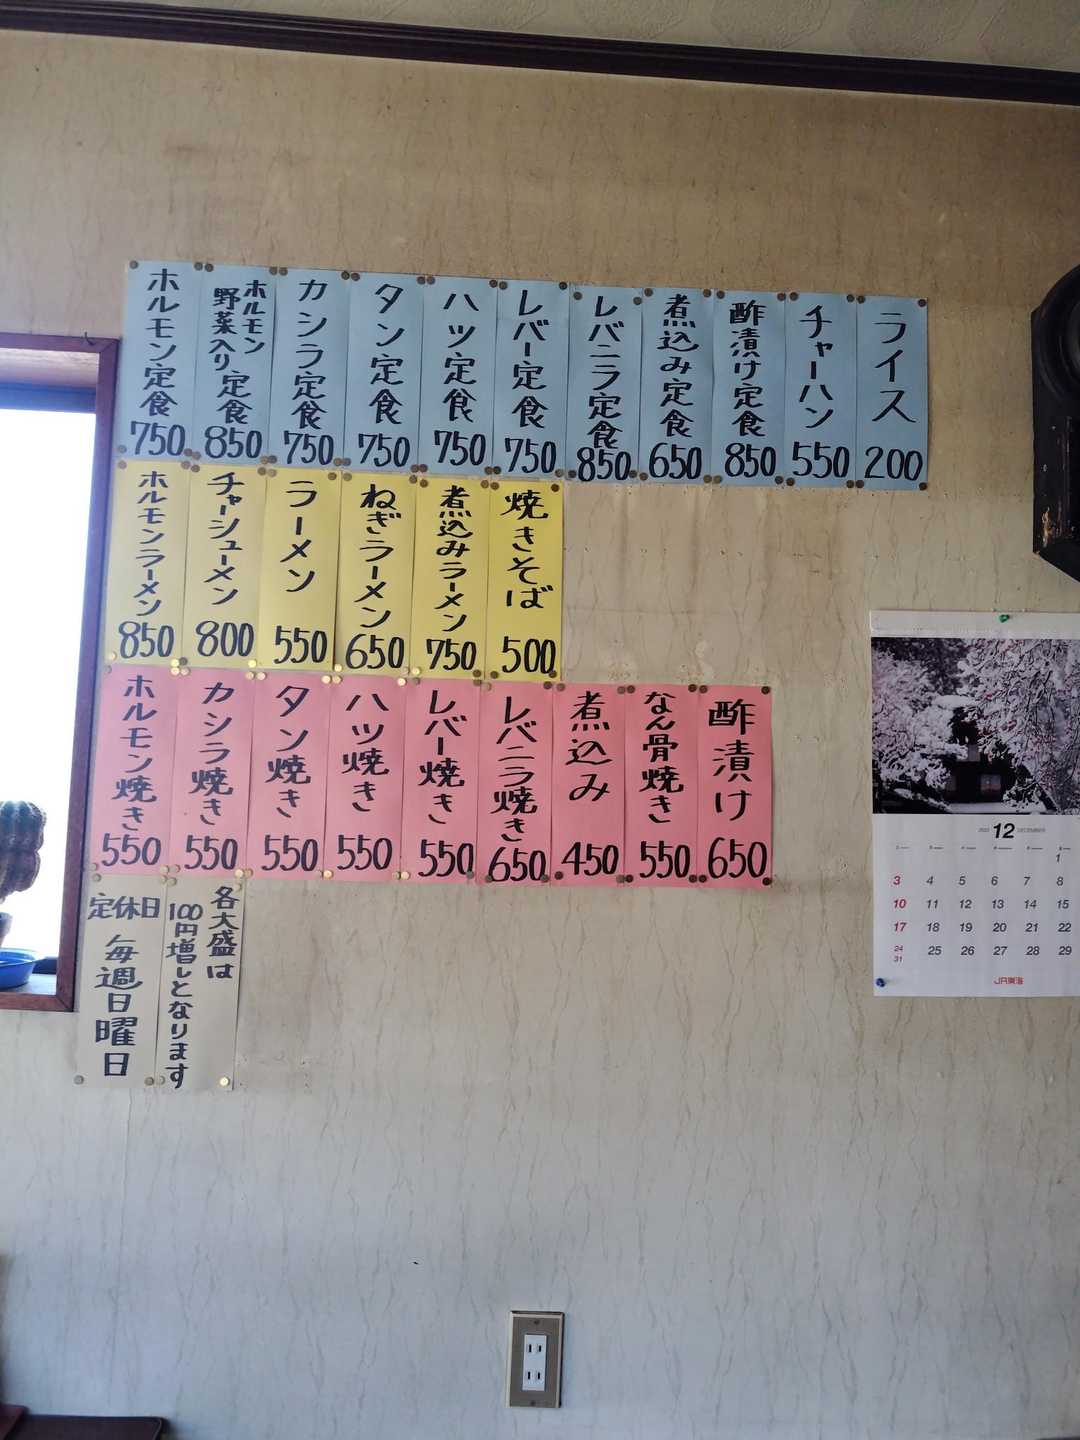 ホルモン定食 750
ホルモン野菜入り定食 850
カシラ定食 750
タン定食 750
ハツ定食 750
レバー定食 750
レバニラ定食 850
煮込み定食 650
酢漬け定食 850
チャーハン 550
ライス 200
ホルモンラーメン 850
チャーシューメン 800
ラーメン 550
ねぎラーメン 650
煮込みラーメン 750
焼きそば 500
ホルモン焼き 550
カシラ焼き 550
タン焼き 550
ハツ焼き 550
レバー焼き 550
レバニラ焼き 650
煮込み 450
なん骨焼き 550
酢漬け 650
定休日
毎週日曜日
各大盛は
100円増しとなります
12 DECEMBER
1
3 4 5 6 7 8
10 11 12 13 14 15
17 18 19 20 21 22
24 25 26 27 28 29
31
JR東海